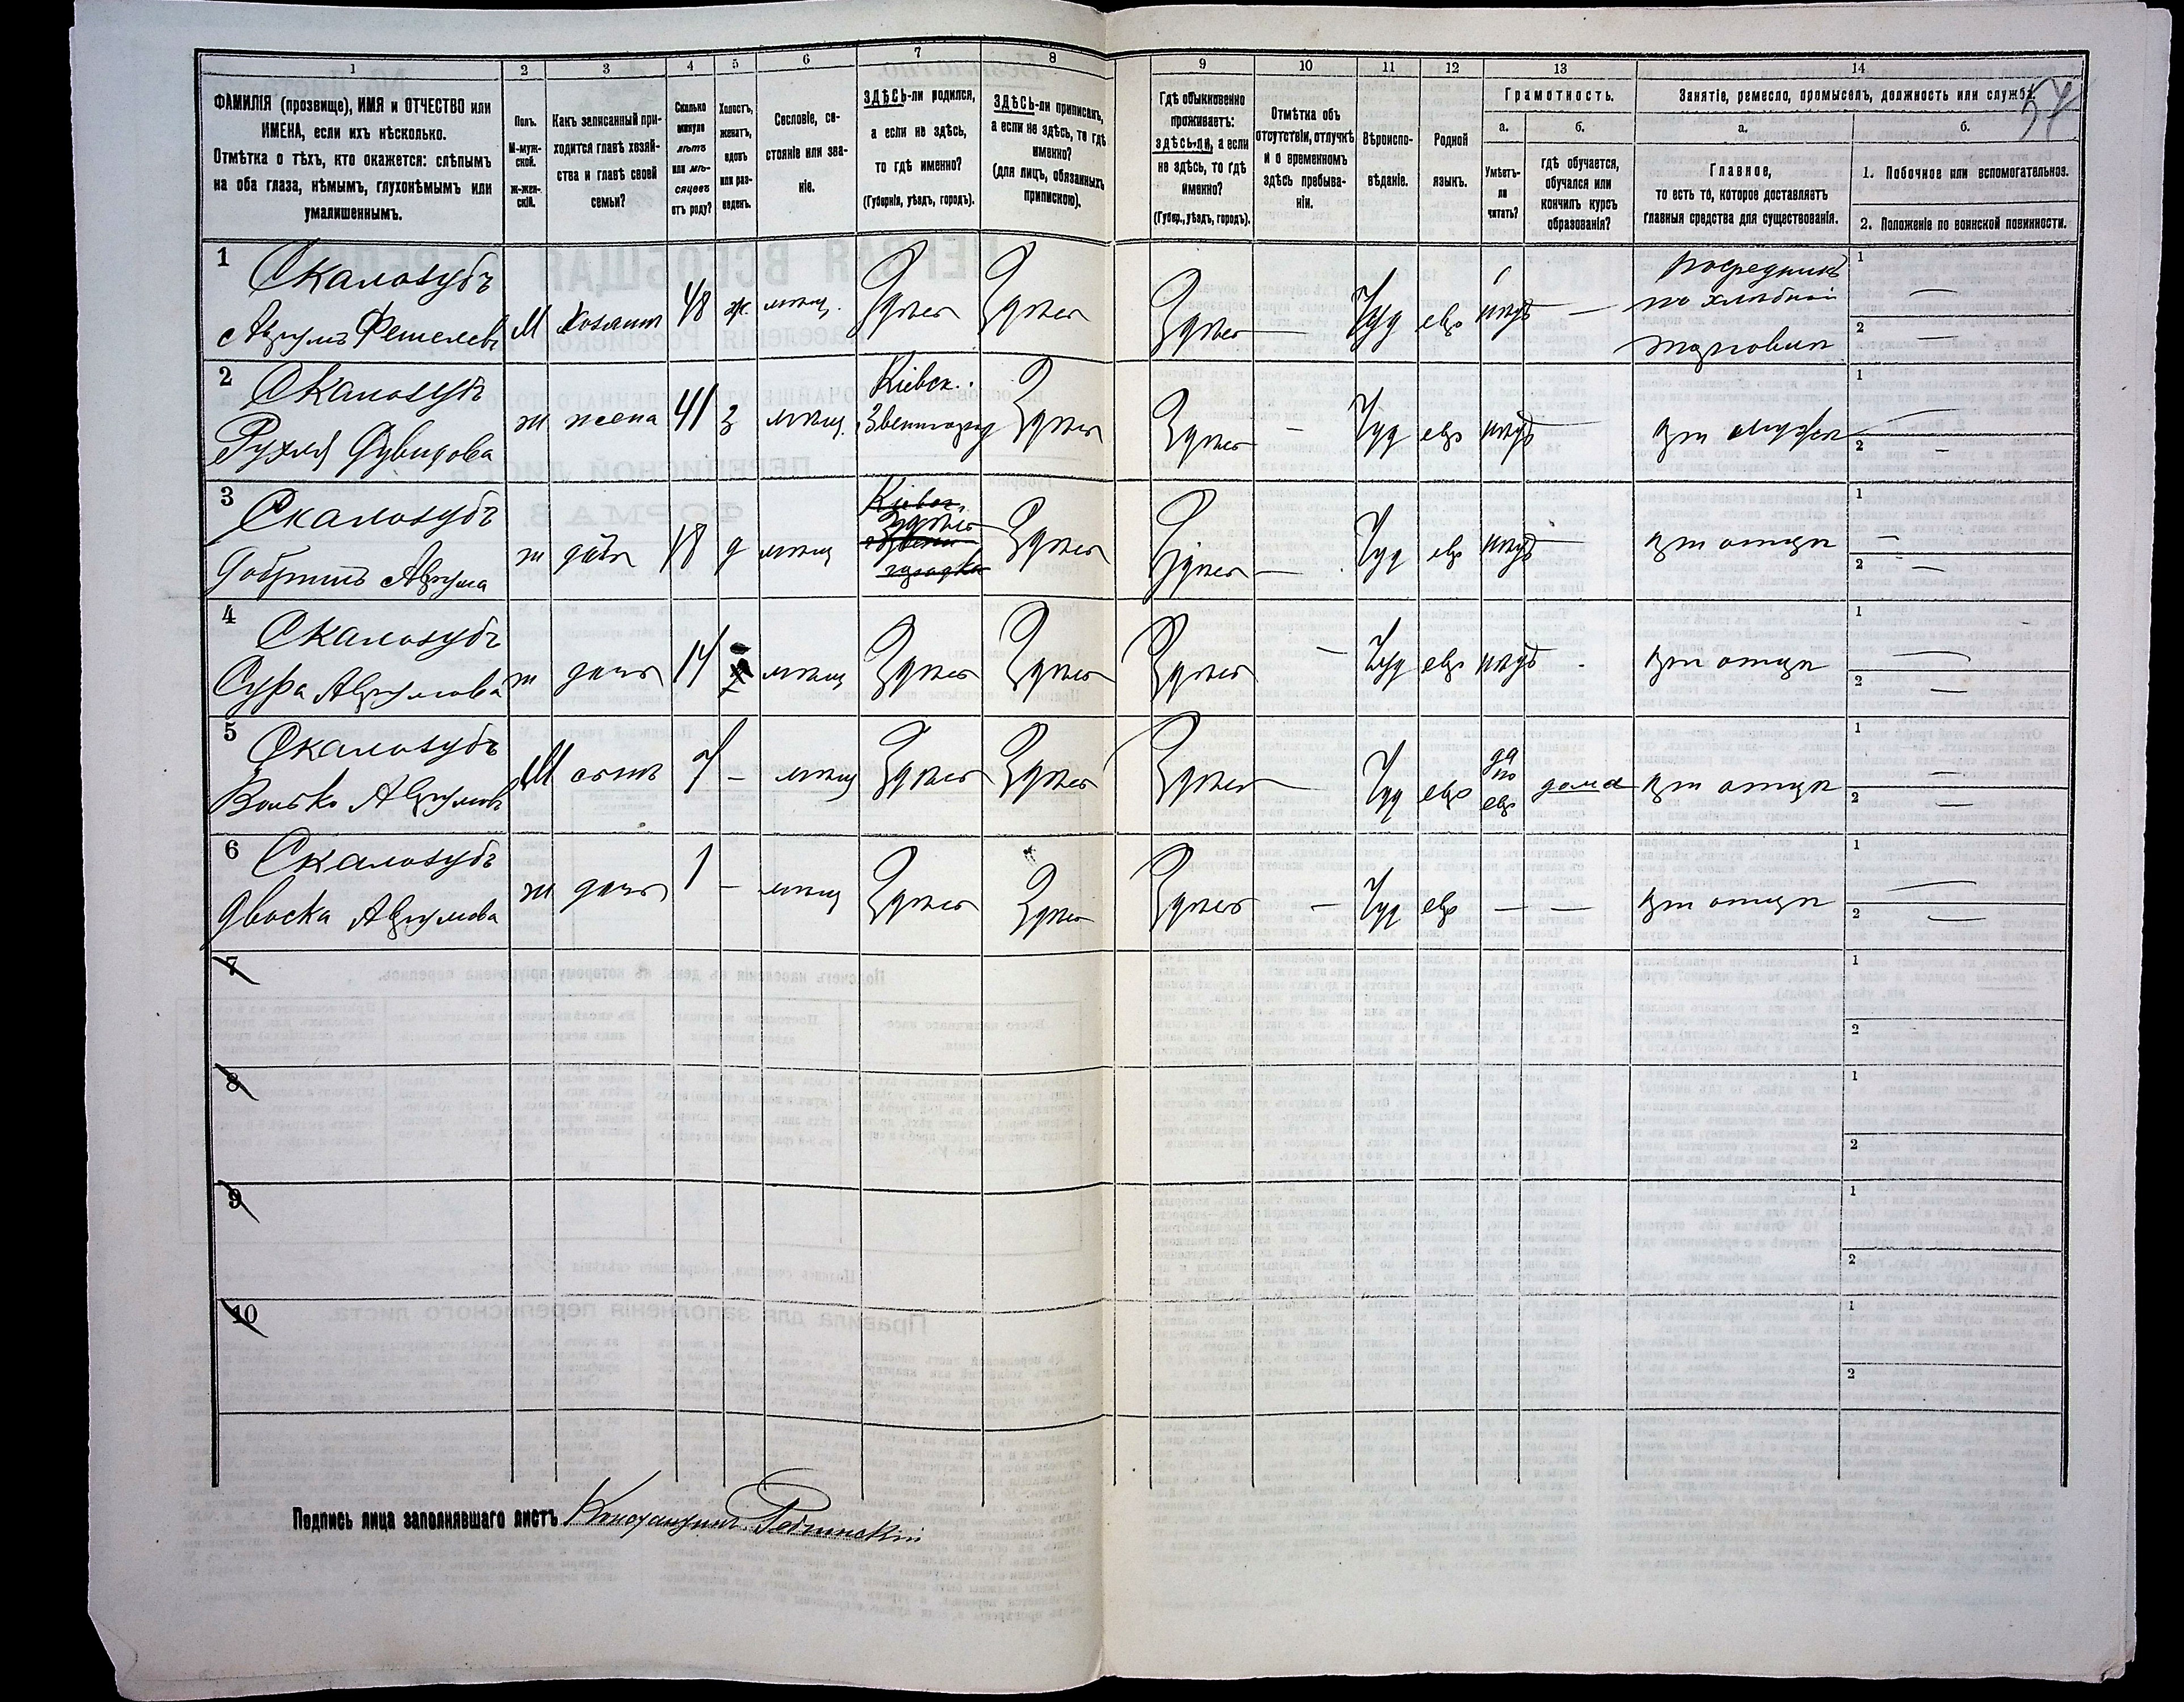 1 2 3 4 5 6 7 8 9 10 11 12 13 14
ФАМИЛІЯ (прозвище), ИМЯ и ОТЧЕСТВО или
ИМЕНА, если ихъ нѣсколько.
Отмѣтка о тѣхъ, кто окажется: слѣпымъ
на оба глаза, нѣмымъ, глухонѣмымъ или
умалишеннымъ.
Полъ.
М-муж-
ской.
ж-жен-
скій.
Какъ записанный при-
ходится главѣ хозяй-
ства и главѣ своей
семьи?
Сколько
минуло
лѣтъ
или мѣ-
сяцевъ
отъ роду?
Холостъ,
женатъ,
вдовъ
или раз-
веденъ.
Сословіе, со-
стояніе или зва-
ніе.
ЗДѢСЬ-ли родился,
а если не здѣсь,
то гдѣ именно?
(Губернія, уѣздъ, городъ).
ЗДѢСЬ-ли приписанъ,
а если не здѣсь, то гдѣ
именно?
(для лицъ, обязанныхъ
припискою).
Гдѣ обыкновенно
проживаетъ:
здѣсь-ли, а если
не здѣсь, то гдѣ
именно?
(Губер., уѣздъ, городъ).
Отмѣтка объ
отсутствіи, отлучкѣ
и о временномъ
здѣсь пребыва-
ніи.
Вѣроиспо-
вѣданіе.
Родной
языкъ.
Грамотность.
а.
Умѣетъ-
ли
читать?
б.
гдѣ обучается,
обучался или
кончилъ курсъ
образованія?
Занятіе, ремесло, промыселъ, должность или служба.
57
а.
Главное,
то есть то, которое доставляетъ
главныя средства для существованія.
б.
1. Побочное или вспомогательное.
2. Положеніе по воинской повинности.
1 Скалозубъ
М Хозяин 48 ж. мѣщ. Здѣсь Здѣсь Здѣсь — Іуд евр — посредникъ
по хлѣбной
торговли
1 —
2 —
2 Скалозубъ
Рухля Дувидова
ж жена 41 з мѣщ. Кіевск.
Звенигород Здѣсь Здѣсь — Іуд евр — при мужѣ
1 —
2 —
3 Скалозубъ
ж дочь 18 д мѣщ Кіевск.
Здѣсь Здѣсь Здѣсь — Іуд евр — при отцѣ
1 —
2 —
4 Скалозубъ
Сура Аврумова
ж дочь 14 мѣщ Здѣсь Здѣсь Здѣсь — Іуд евр при отцѣ
1 —
2 —
5 Скалозубъ
Волько Аврумовъ
М сынъ 7 — мѣщ Здѣсь Здѣсь Здѣсь Іуд евр да
по
евр дома при отцѣ
1 —
2 —
6 Скалозубъ
Двоска Аврумова
ж дочь 1 — мѣщ Здѣсь Здѣсь Здѣсь — Іуд евр — — при отцѣ
1 —
2 —
7
1
2
8
1
2
9
1
2
10
1
2
Подпись лица заполнявшаго листъ